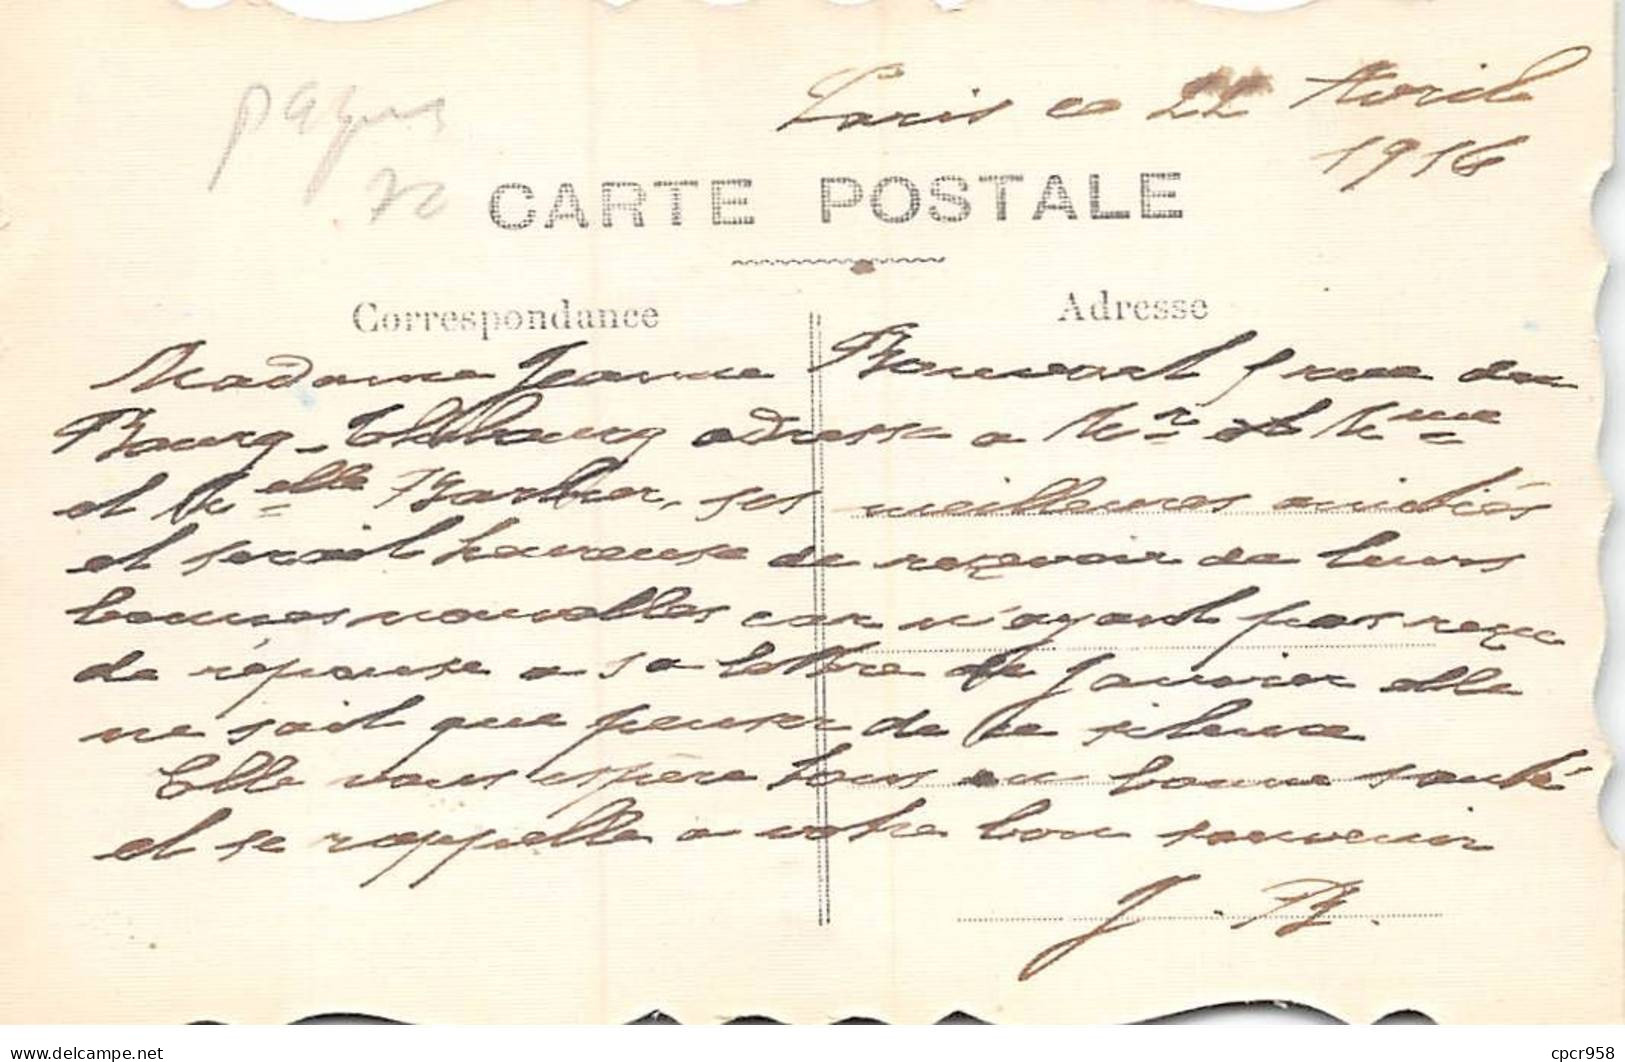 Paris ce 22 Avril
1916
Pâques
CARTE POSTALE
Correspondance
Adresse
Madame Jeanne rue du
Bourg-Thibourg adresse a Mr et Mme
et Melle Barbier, ses meilleures amitiés
et serait heureuse de reçevoir de leurs
bonnes nouvelles car n'ayant pas reçu
de réponse a sa lettre de Janvier elle
ne sait que penser de ce silence
Elle vous espère tous en bonne santé
et se rappelle a votre bon souvenir
J. B.
cpcr958